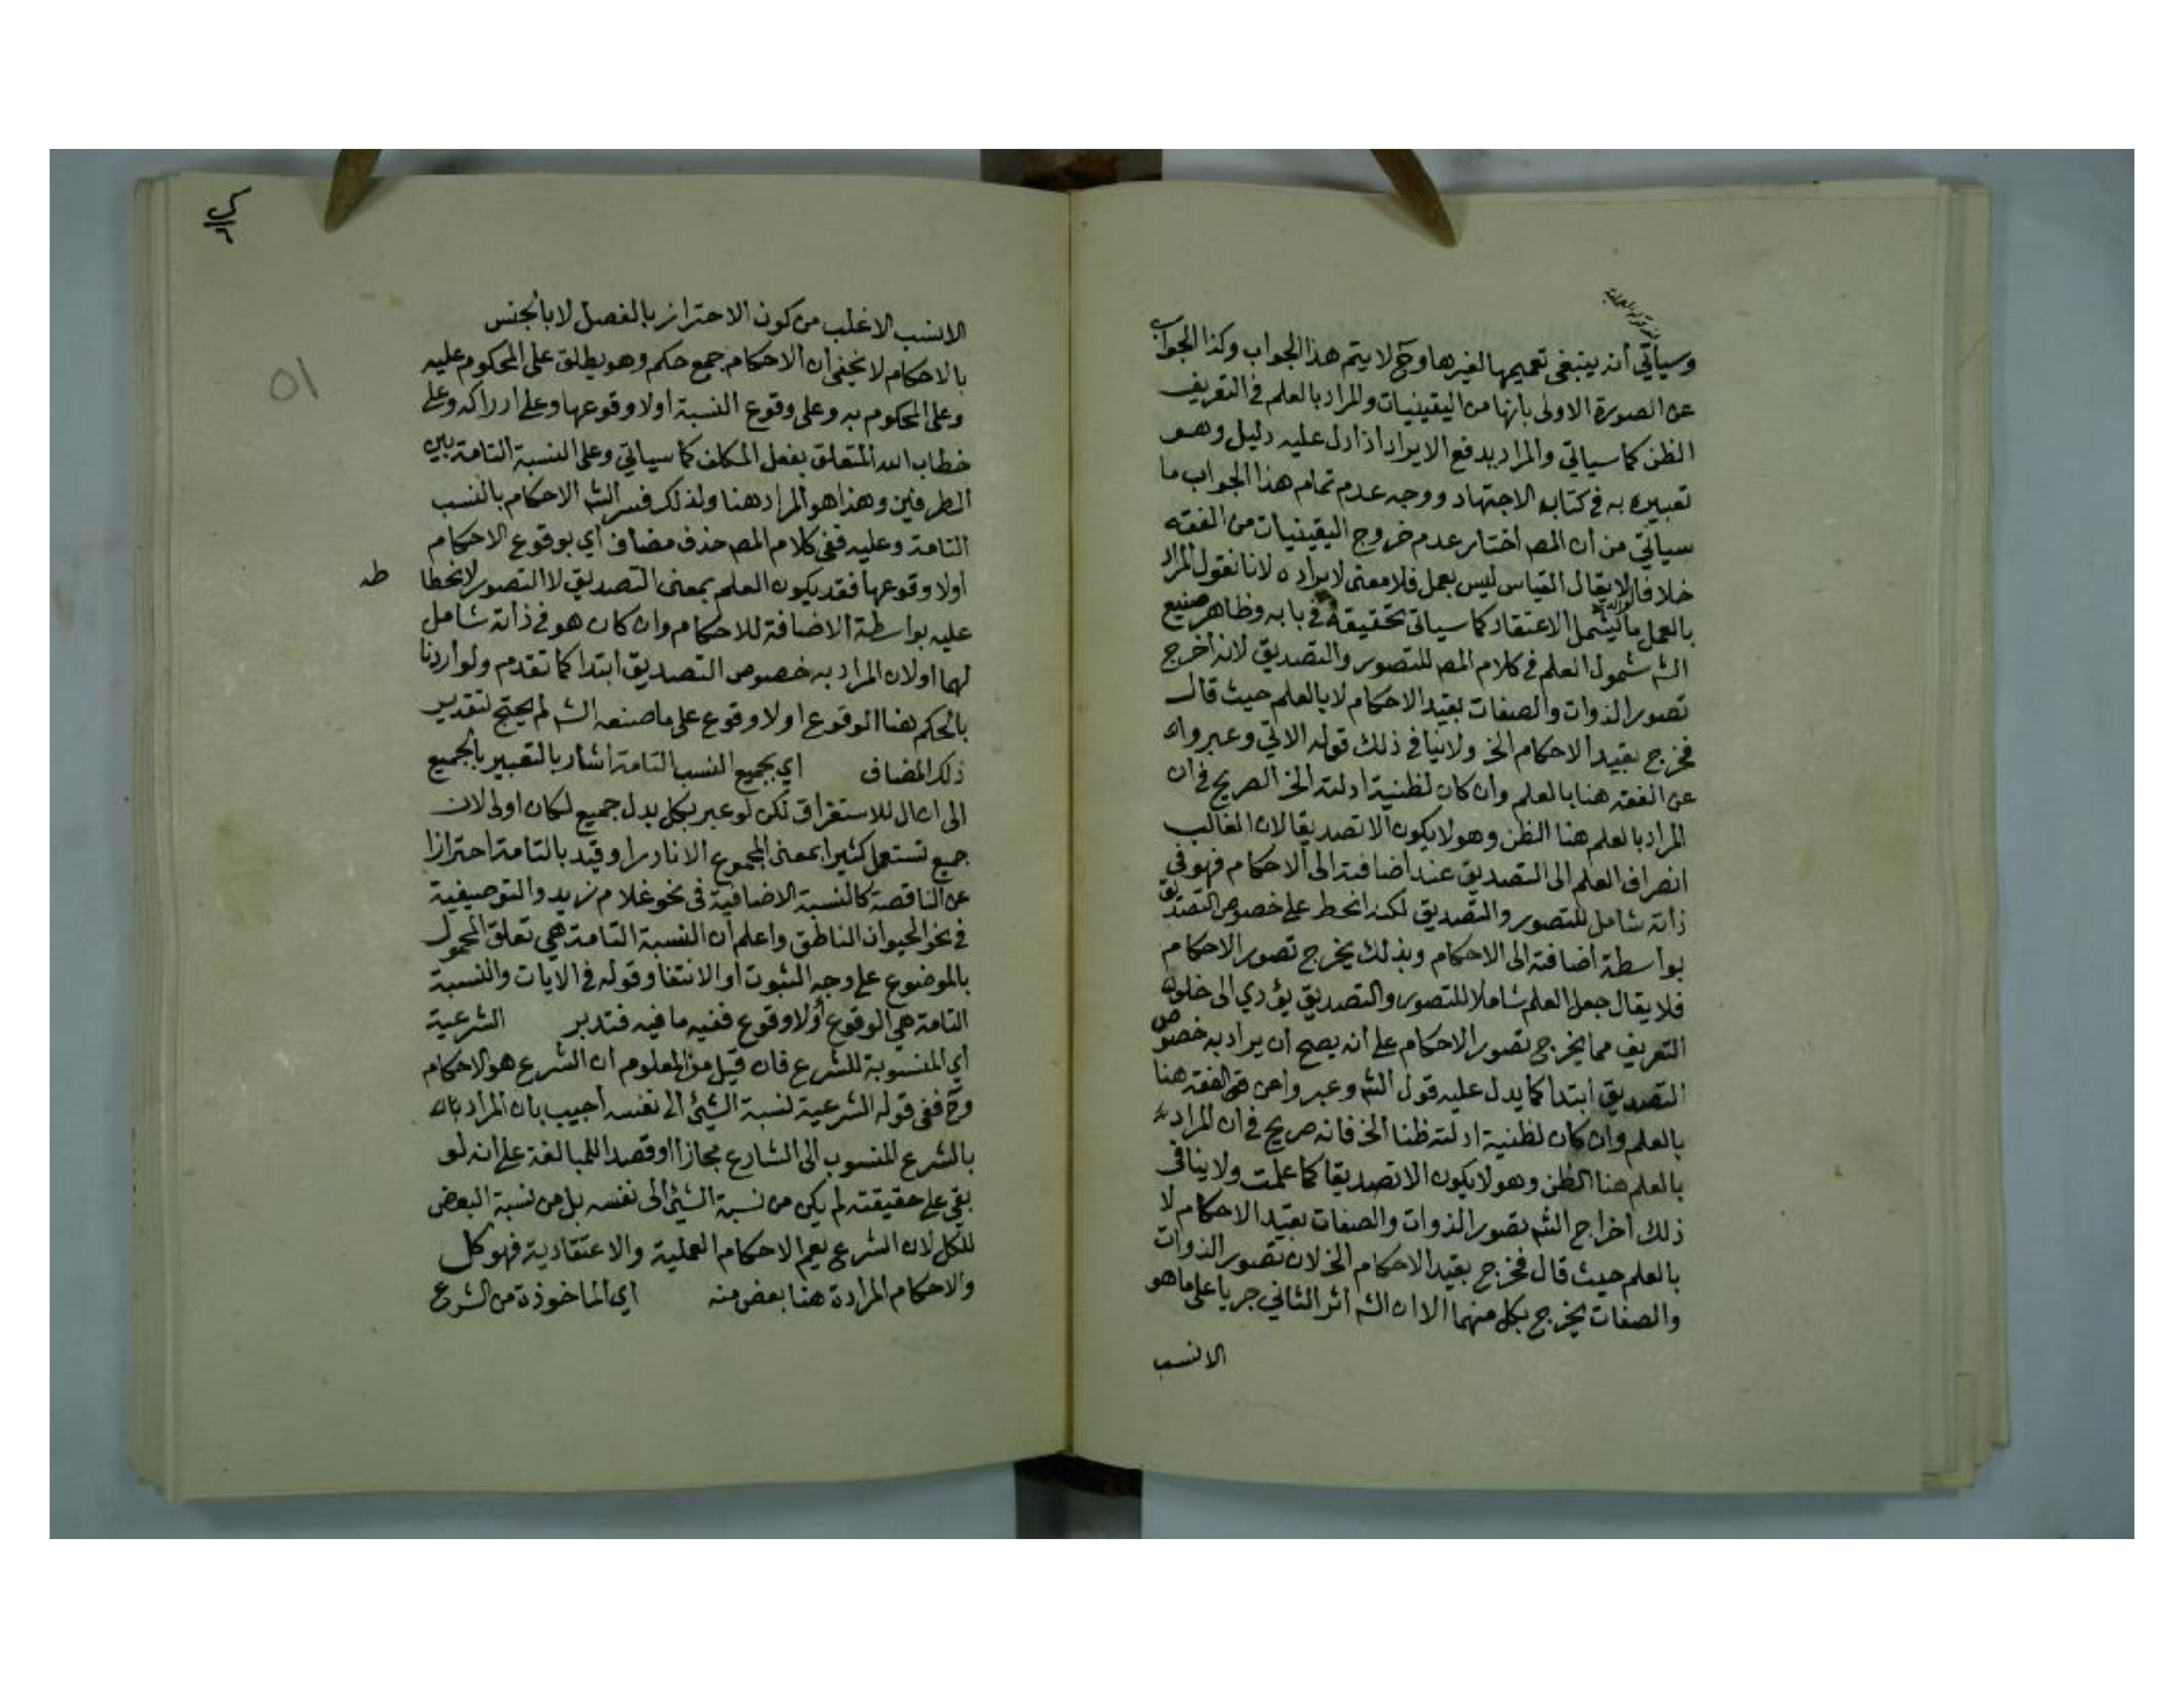 وسيأتي أنه ينبغي تعميمها لغيرها وح لا يتم هذا الجواب وكذا الجواب
عن الصورة الاولى بانها من اليقينيات والمراد بالعلم في التعريف
الظن كما سياتي والمراد بدفع الايراد اذا دل عليه دليل وهو
تعبيره به في كتاب الاجتهاد ووجه عدم تمام هذا الجواب ما
سيأتي من أن المصـ اختار عدم خروج اليقينيات من الفقه
خلافا لا يقال القياس ليس بعمل فلا معنى لايراده لانا نقول المراد
بالعمل ما يشمل الاعتقاد كما سياتي تحقيقه في بابه وظاهر صنيع
الشـ شمول العلم في كلام المصـ للتصور والتصديق لانه أخرج
تصور الذوات والصفات بقيد الاحكام لا بالعلم حيث قال
فخرج بقييد الاحكام الخ ولا ينافي ذلك قوله الاتي وعبروا
عن الفقه هنا بالعلم وان كان لظنية ادلته الخ الصريح في ان
المراد بالعلم هنا الظن وهو لا يكون الا تصديقا لان الغالب
انصراف العلم الى التصديق عند اضافته الى الاحكام فهو في
ذاته شامل للتصور والتصديق لكنه انحط على خصوص التصديق
بواسطة اضافته الى الاحكام وبذلك يخرج تصور الاحكام
فلا يقال جعل العلم شاملا للتصور والتصديق يؤدي الى خلو
التعريف مما يخرج تصور الاحكام على أنه يصح ان يراد به خصوص
التصديق ابتدا كما يدل عليه قول الشـ وعبروا عن الفقه هنا
بالعلم وان كان لظنية ادلته ظنا الخ فانه صريح في ان المراد
بالعلم هنا الظن وهو لا يكون الا تصديقا كما علمت ولا ينافي
ذلك اخراج الشـ تصور الذوات والصفات بقيد الاحكام لا
بالعلم حيث قال فخرج بقيد الاحكام الخ لان تصور الذوات
والصفات يخرج بكل منهما الا ان الشـ اثر الثاني جريا على ما هو
الانسب
الانسب الاغلب من كون الاحتراز بالفصل لا بالجنس
بالاحكام لا يخفى أن الاحكام جمع حكم وهو يطلق على المحكوم عليه
وعلى المحكوم به وعلى وقوع النسبة اولا وقوعها وعلى ادراكه وعلى
خطاب الله المتعلق بفعل المكلف كما سياتي وعلى النسبة التامة بين
الطرفين وهذا هو المراد هنا ولذلك فسر الشـ الاحكام بالنسب
التامة وعليه ففي كلام المصـ حذف مضاف أي بوقوع الاحكام
اولا وقوعها فقد يكون العلم بمعنى التصديق لا التصور لانحطا
طه
عليه بواسطة الاضافة للاحكام وان كان هو في ذاته شامل
لهما اولان المراد به خصوص التصديق ابتدا كما تقدم ولو أردنا
بالحكم هنا الوقوع اولا وقوع على ما صنعه الشـ لم يحتج لتقدير
ذلك المضاف اي بجميع النسب التامة اشار بالتعبير بالجميع
الى ان ال للاستغراق لكن لو عبر بكل بدل جميع لكان اولى لان
جميع تستعمل كثيرا بمعنى المجموع الا نادرا وقيد بالتامة احترازا
عن الناقصة كالنسبة الاضافية في نحو غلام زيد والتوصيفية
في نحو الحيوان الناطق واعلم أن النسبة التامة هي تعلق المحمول
بالموضوع على وجه الثبوت او الانتفا وقوله في الايات والنسبة
التامة هي الوقوع أولا وقوع ففيه ما فيه فتدبر الشرعية
أي المنسوبة للشرع فان قيل من المعلوم ان الشرع هو الاحكام
وح ففي قوله الشرعية نسبة الشيئ الى نفسه أجيب بان المراد
بالشرع المنسوب الى الشارع مجازا او قصدا للمبالغة على انه لو
بقي على حقيقته لم يكن من نسبة الشيئ الى نفسه بل من نسبة البعض
للكل لان الشرع يعم الاحكام العملية والاعتقادية فهو كل
والاحكام المرادة هنا بعض منه اي الماخوذة من الشرع